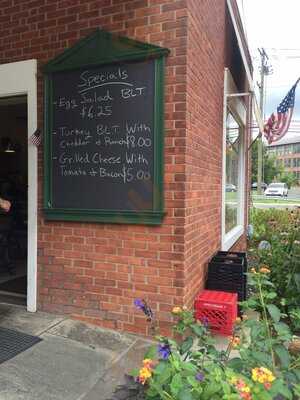 Specials
- Egg Salad BLT
$6.25
- Turkey BLT With
Cheddar & Ranch $8.00
- Grilled Cheese With
Tomato & Bacon $5.00